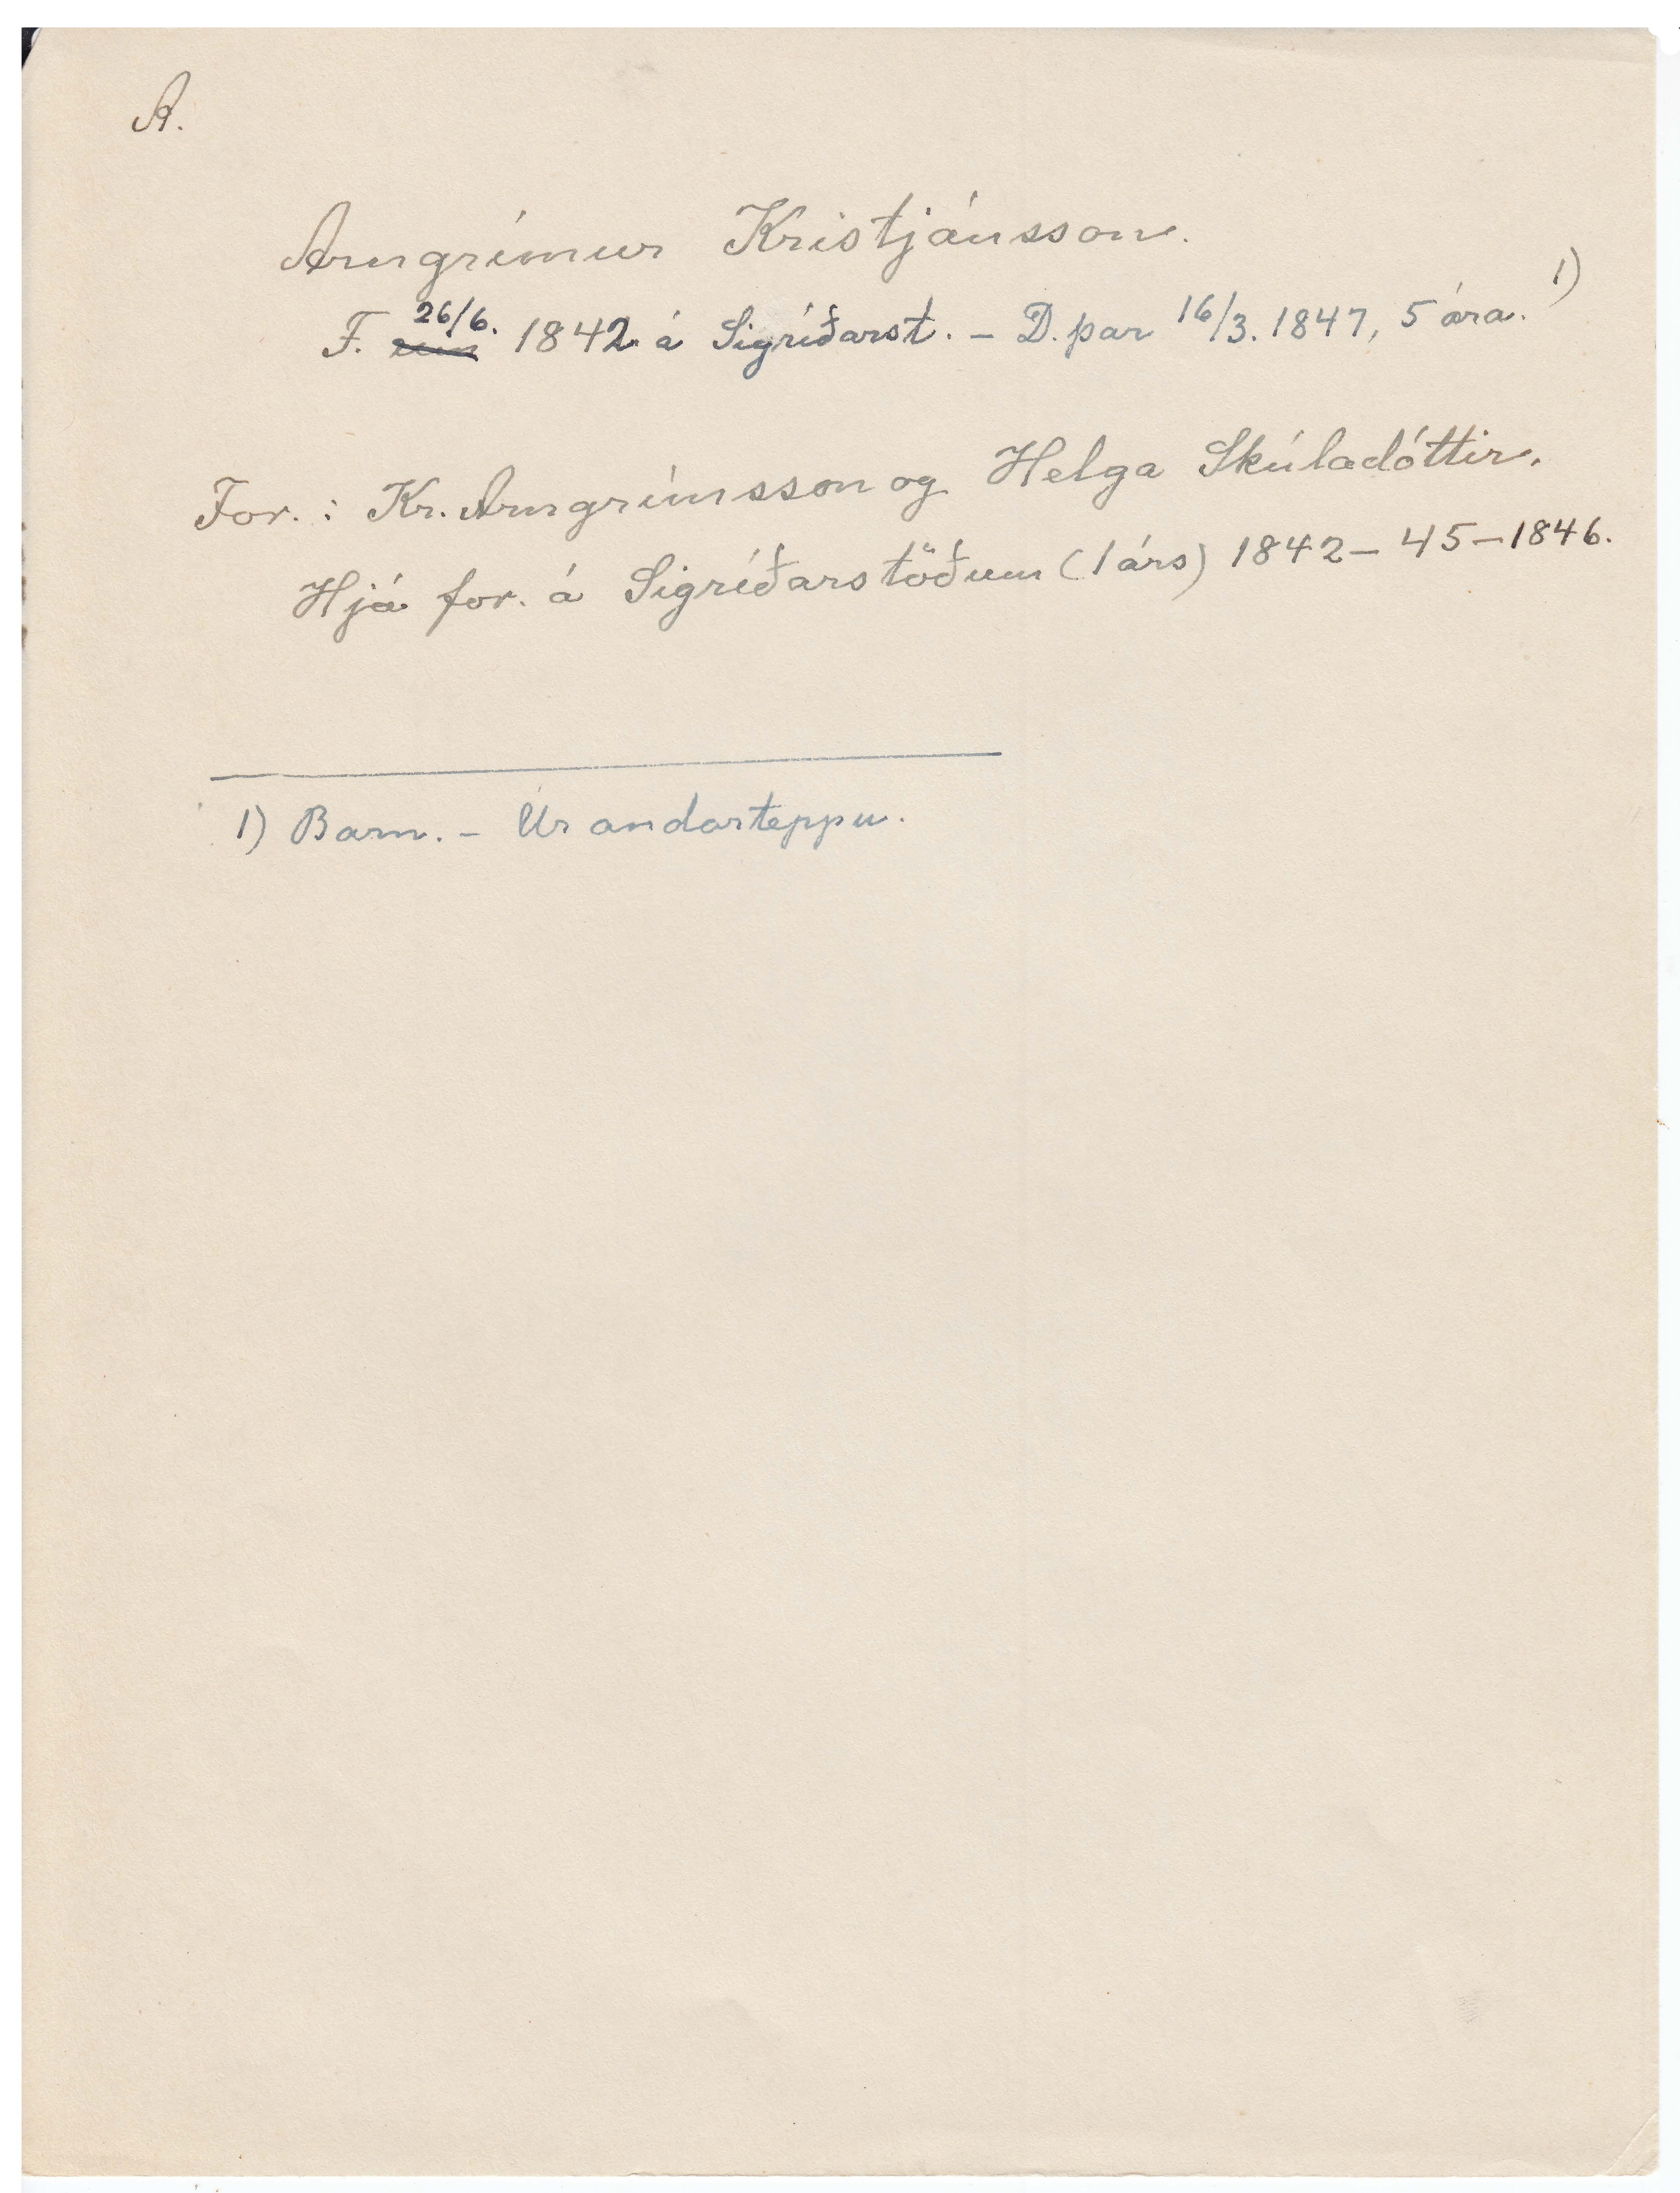 A.
Arngrímur Kristjánsson.
F. 26/6. 1842 á Sigríðarst. - D. þar 16/3. 1847, 5 ára. 1)
For. : Kr. Arngrímsson og Helga Skúladóttir.
Hjá for. á Sigríðarstöðum (1 árs) 1842 - 45 - 1846.
1) Barn. - Úr andarteppu.